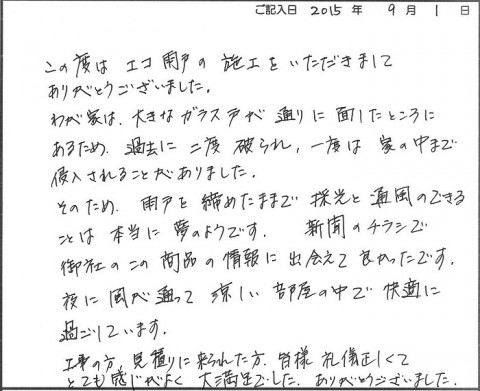 ご記入日 2015年 9月 1日
この度は エコ雨戸の 施工を いただきまして
ありがとうございました。
わが家は、大きなガラス戸が 通りに 面したところに
あるため、過去に 二度 破られ、一度は 家の中まで
侵入されることがありました。
そのため、雨戸を 締めたままで 採光と 通風のできる
ことは 本当に 夢のようです。 新聞のチラシで
御社の この 商品の 情報に 出会えて 良かったです。
夜に 風が 通って 涼しい 部屋の中で 快適に
過ごしています。
工事の方、見積りに 来られた方、皆様 礼儀正しくて
とても 感じがよく 大満足でした。ありがとうございました。